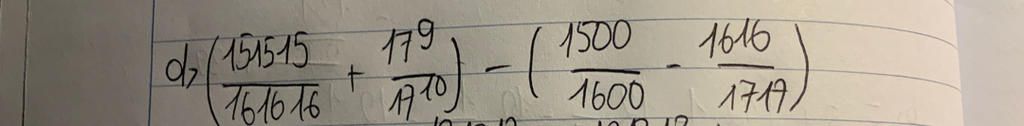 d, (151515/161616 + 17^9/17^10) - (1500/1600 - 1616/1717)